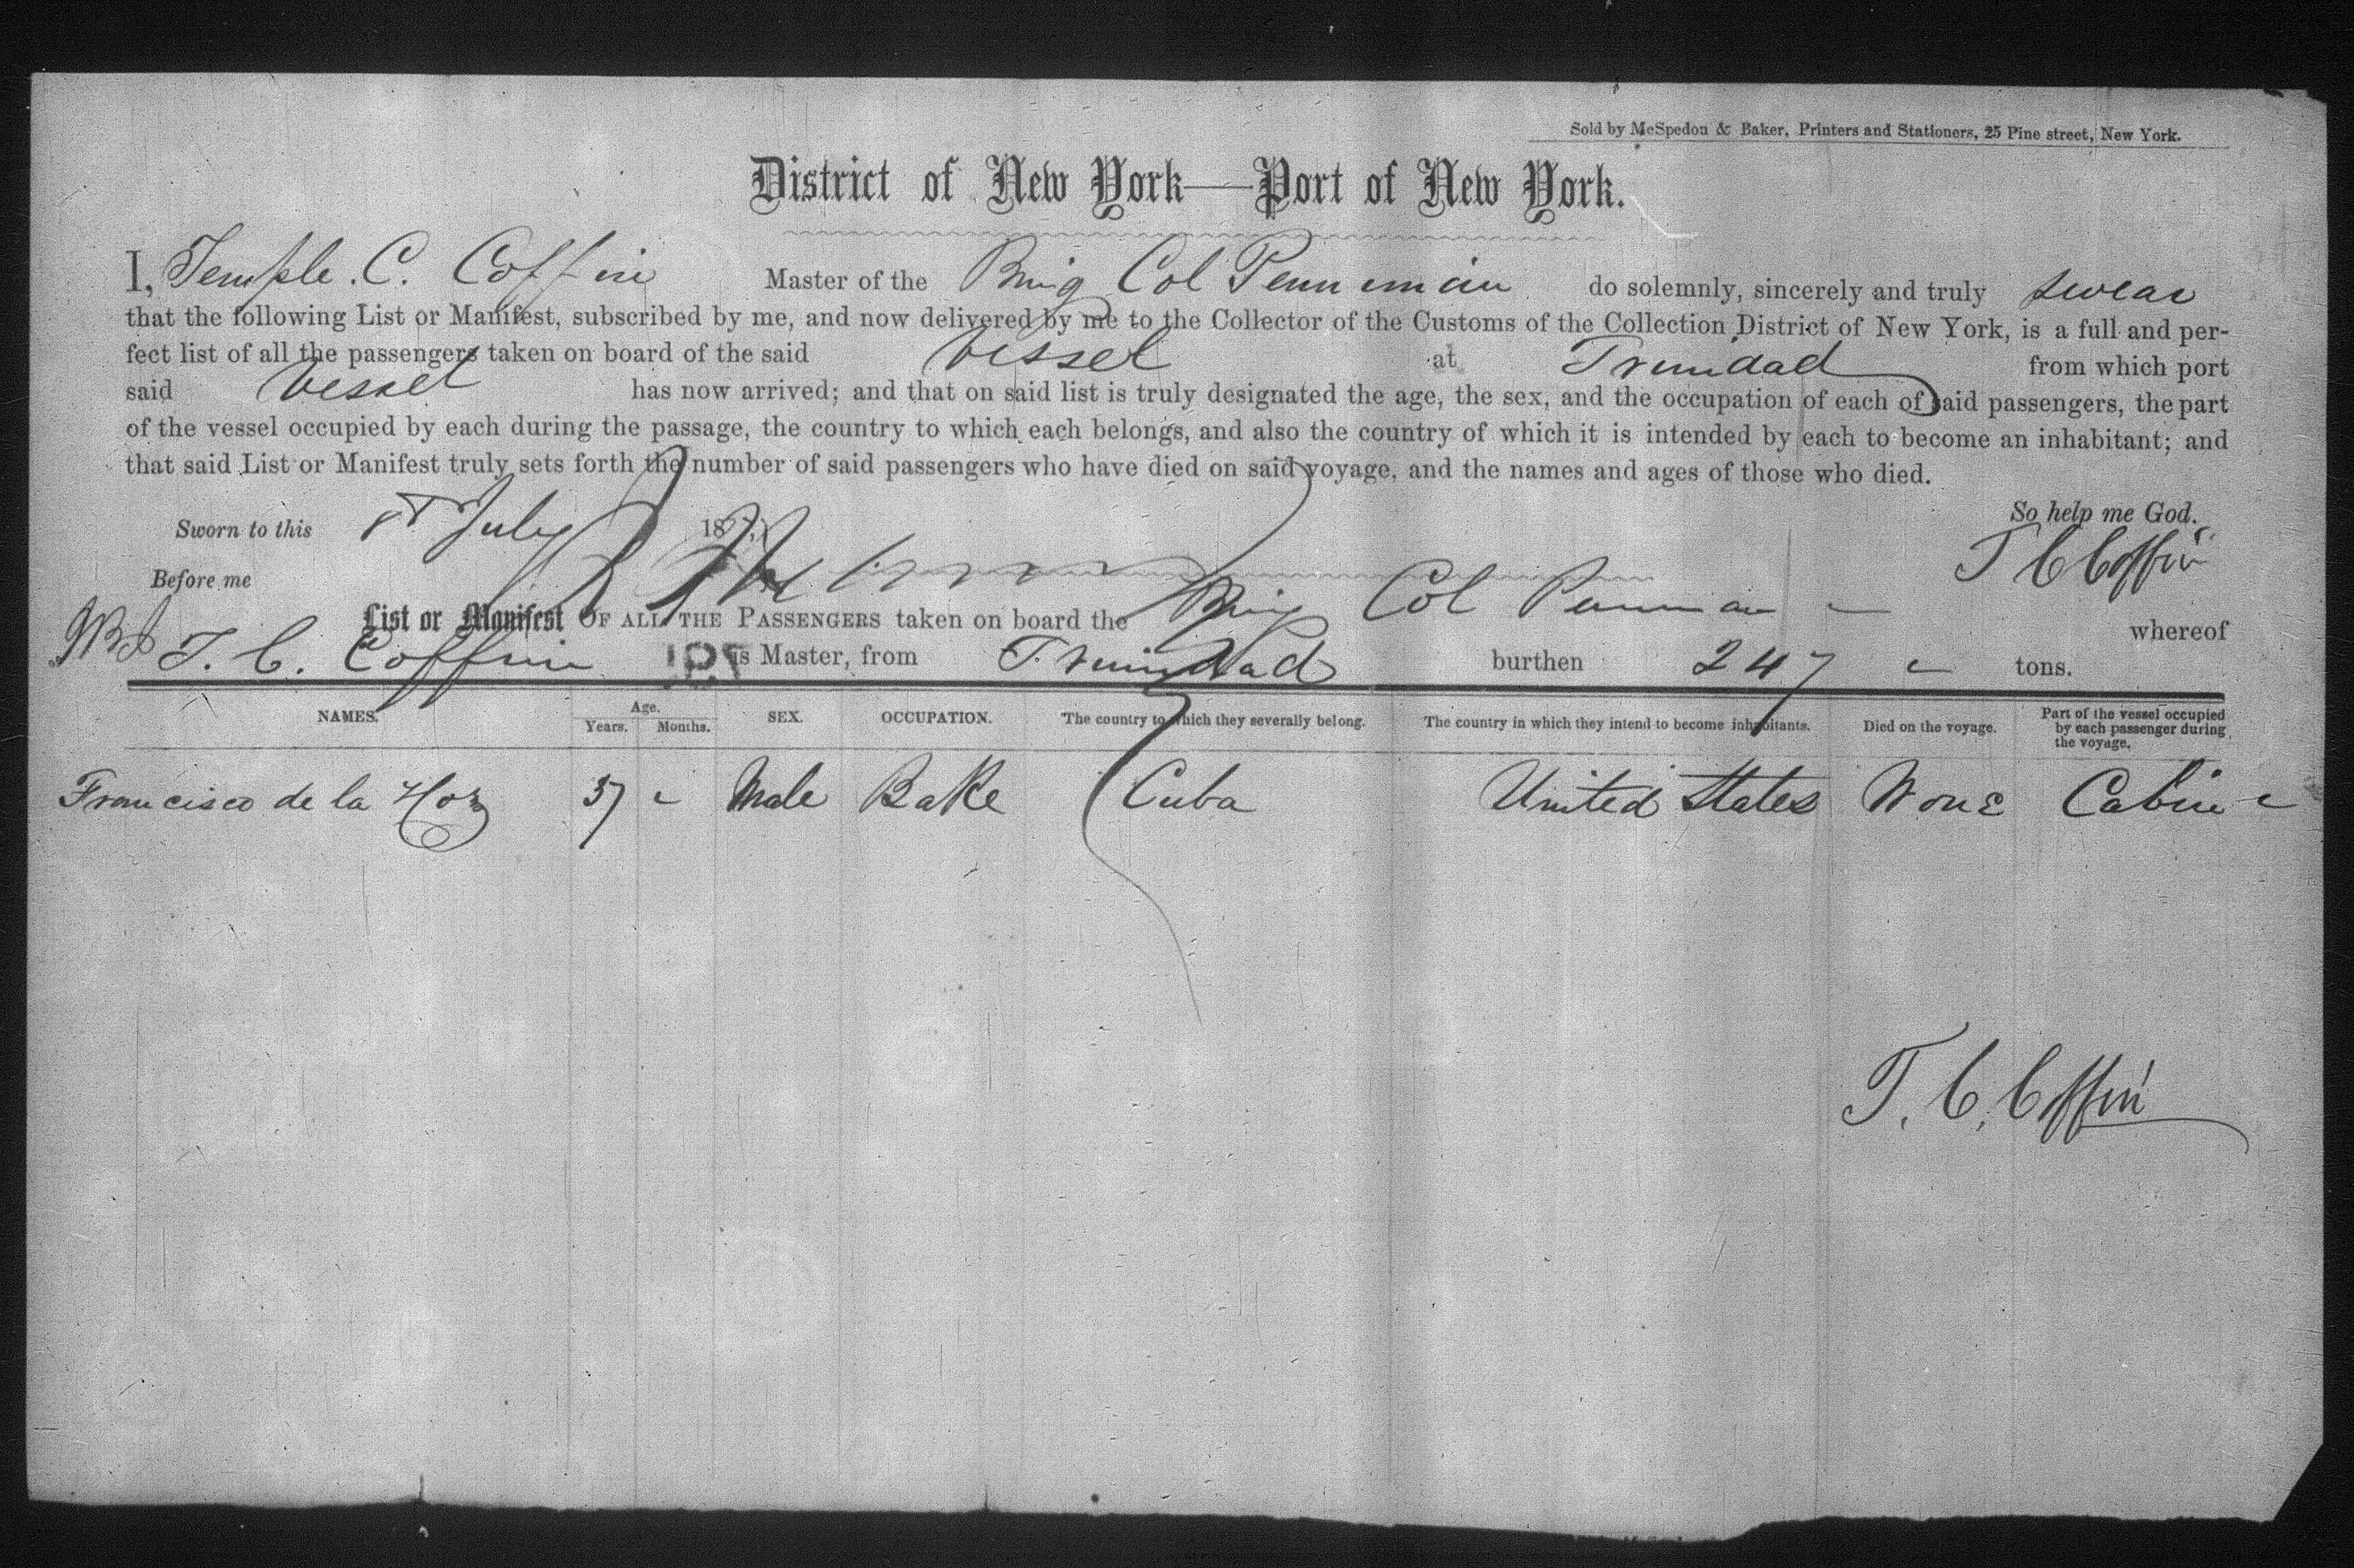 Sold by McSpedon & Baker, Printers and Stationers, 25 Pine street, New York.
District of New York—Port of New York.
I, Temple. C. Coffin Master of the Brig Col Penniman do solemnly, sincerely and truly swear
that the following List or Manifest, subscribed by me, and now delivered by me to the Collector of the Customs of the Collection District of New York, is a full and per-
fect list of all the passengers taken on board of the said Vessel at Trinidad from which port
said Vessel has now arrived; and that on said list is truly designated the age, the sex, and the occupation of each of said passengers, the part
of the vessel occupied by each during the passage, the country to which each belongs, and also the country of which it is intended by each to become an inhabitant; and
that said List or Manifest truly sets forth the number of said passengers who have died on said voyage, and the names and ages of those who died.
So help me God.
Sworn to this 8 July 185
T C Coffin
Before me
List or Manifest OF ALL THE PASSENGERS taken on board the Brig Col Penniman whereof
T. C. Coffin is Master, from Trinidad burthen 247 tons.
NAMES. Age. Years. Months. SEX. OCCUPATION. The country to which they severally belong. The country in which they intend to become inhabitants. Died on the voyage. Part of the vessel occupied by each passenger during the voyage.
Francisco de la Hoz 37 Male Bake Cuba United States None Cabin
T. C. Coffin